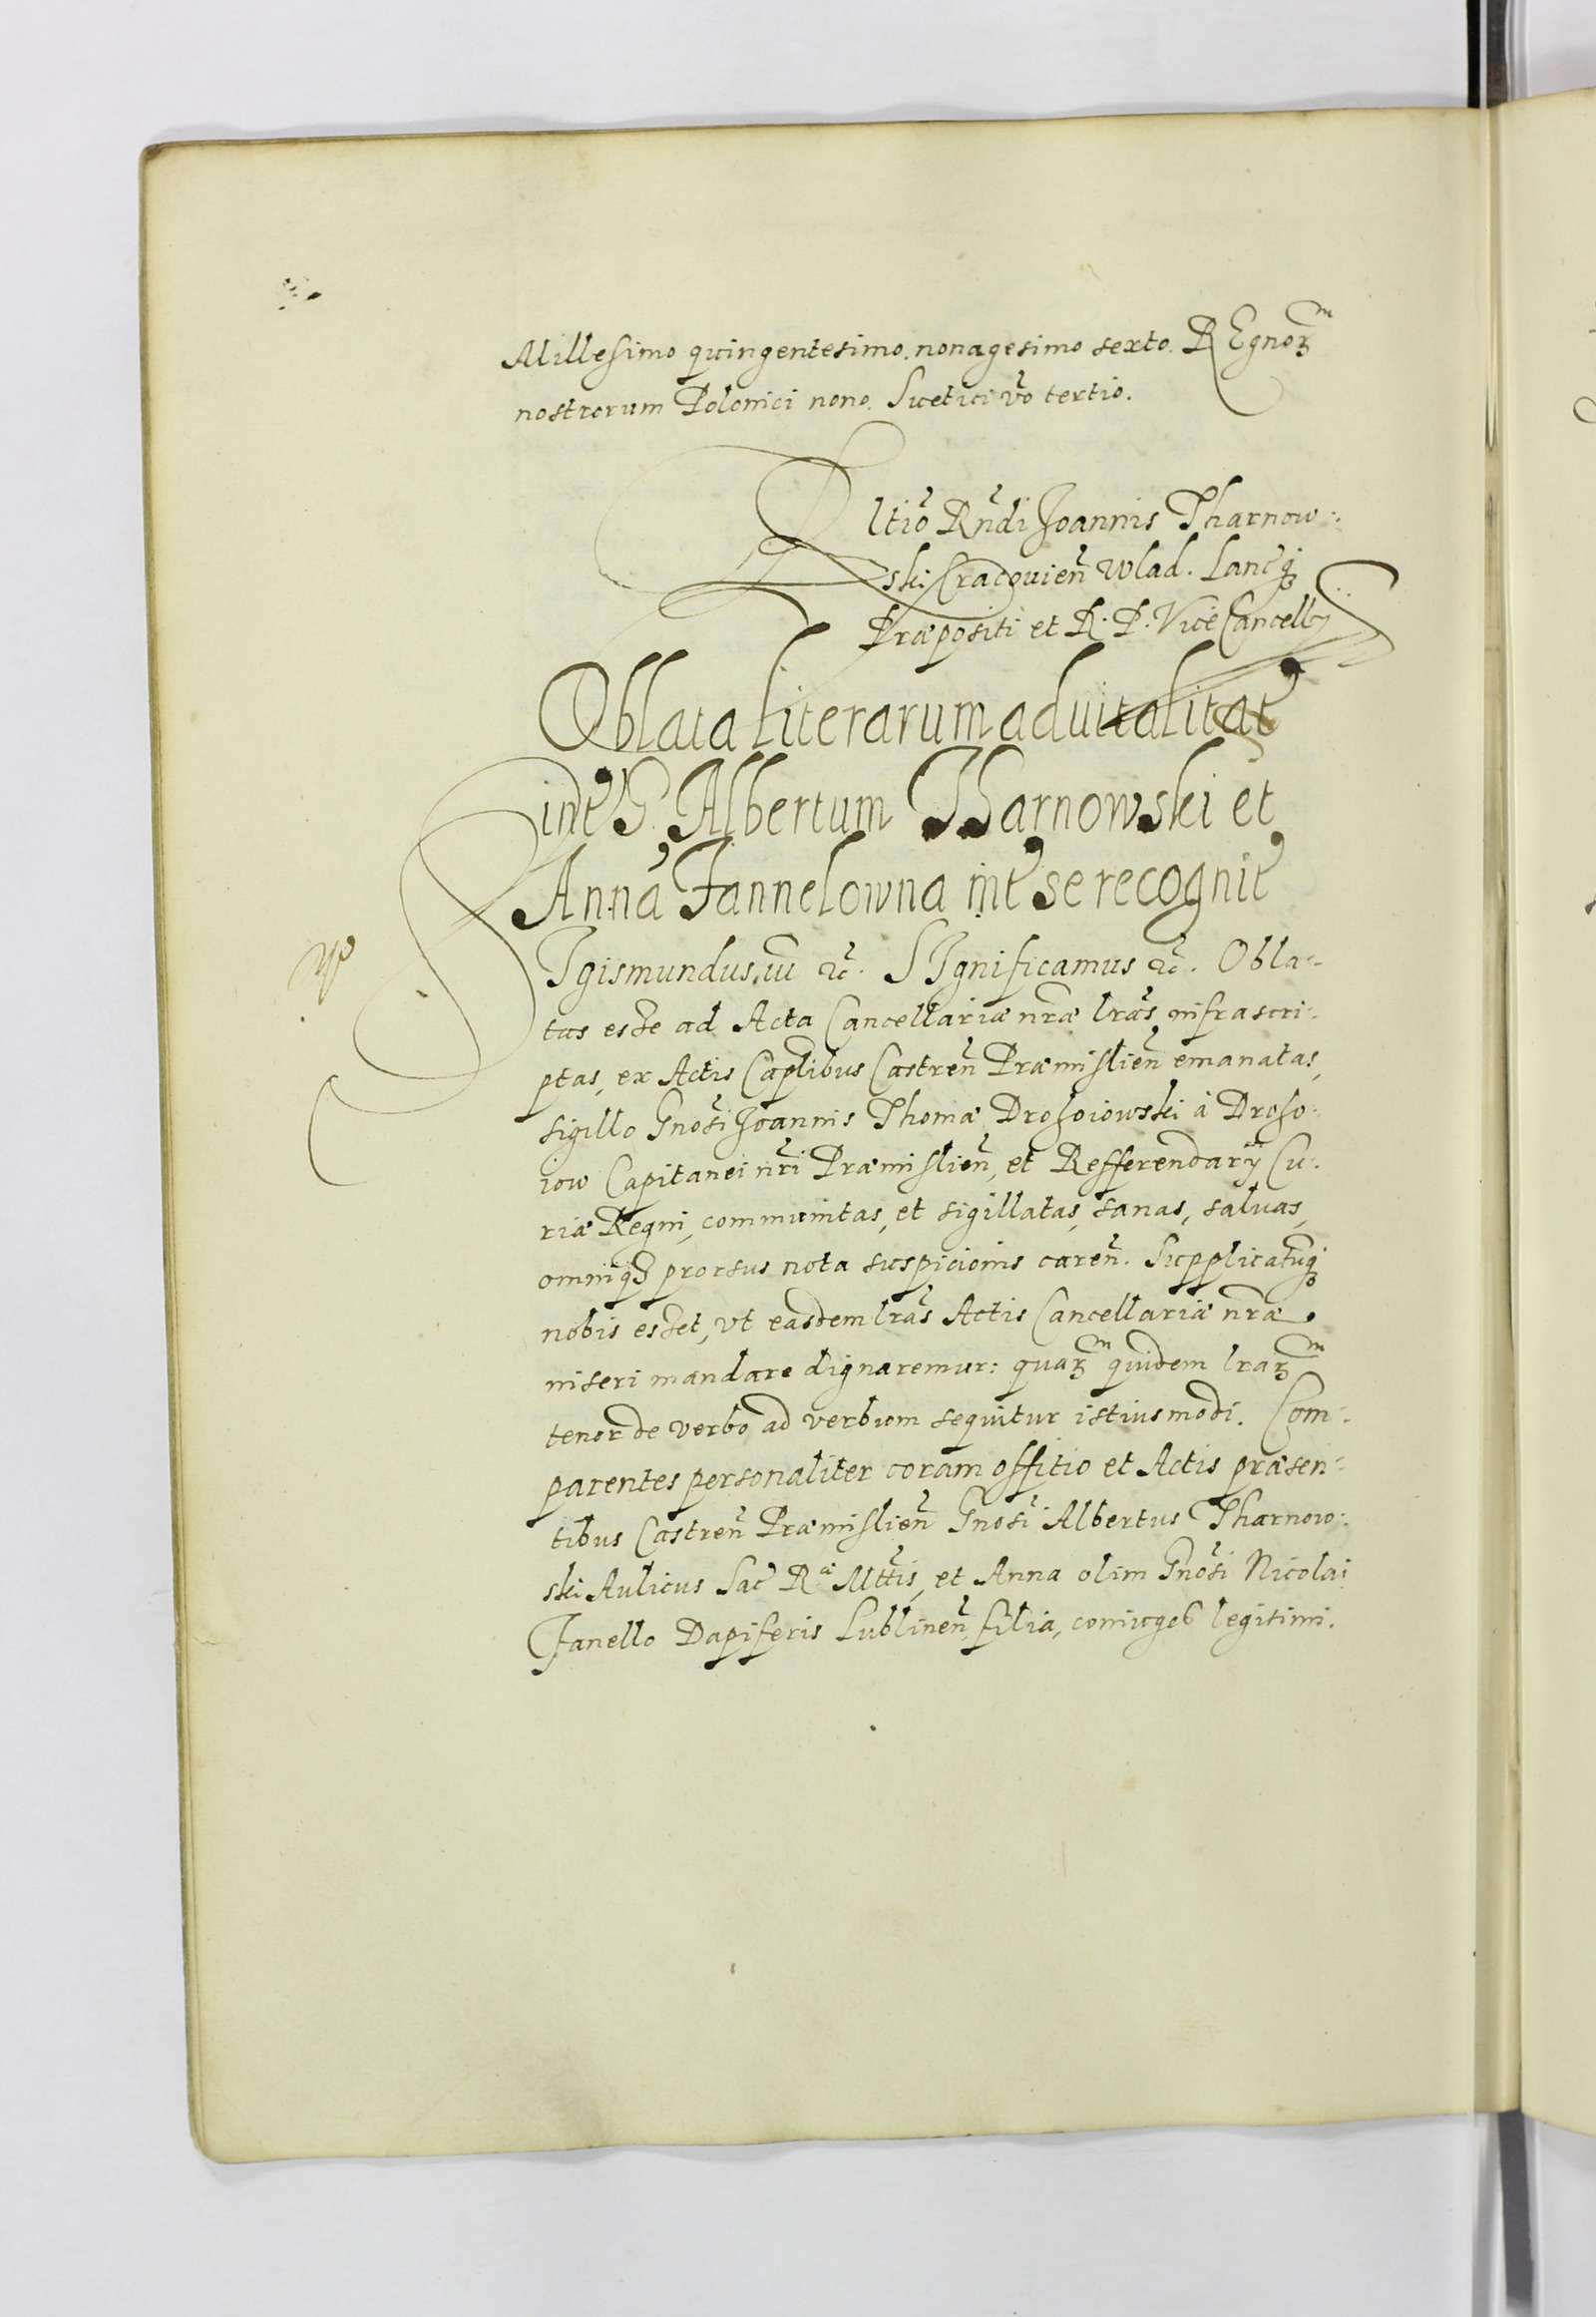 Millesimo quingentesimo. nonagesimo sexto. REgnoꝝm
nostrorum Polonici nono. Suetici ṽo tertio.
Rltio Rñdi Joannis Tharnow:
ski Cracouien̄ Wlad. Lancꝫ
Præpositi et R. P. ViceCancellÿ
Oblata literarum aduitalitat
int G. Albertum Tharnowski et
Annã Jannelowna int se recognit
SJgismundus iii ꝛc. SJgnificamus ꝛc. Obla-
tas esse ad Acta Cancellariæ nr̃æ lr̃as infrascri-
ptas, ex Actis Cap̃libus Castren̄ Præmislien̄ emanatas,
sigillo Gnosi Joannis Thomæ Drohoiowski à Droho-
iow Capitanei nr̃i Præmislien̄, et Refferendarÿ Cu-
riæ Regni, communitas, et sigillatas, sanas, saluas,
omniqꝫ prorsus nota suspicionis caren̄. Supplicatũqꝫ
nobis esset, vt easdem lr̃as Actis Cancellariæ nr̃æ
inseri mandare dignaremur: quaꝝm quidem lraꝝm
tenor de verbo ad verbum sequitur istiusmodi. Com-
parentes personaliter coram offitio et Actis præsen-
tibus Castren̄ Præmislien̄ Gnosi Albertus Tharnow:
ski Aulicus Sac Ræ Mttis, et Anna olim Gnosi Nicolai
Janello Dapiferis Lublinen̄, filia, coniuges legitimi.